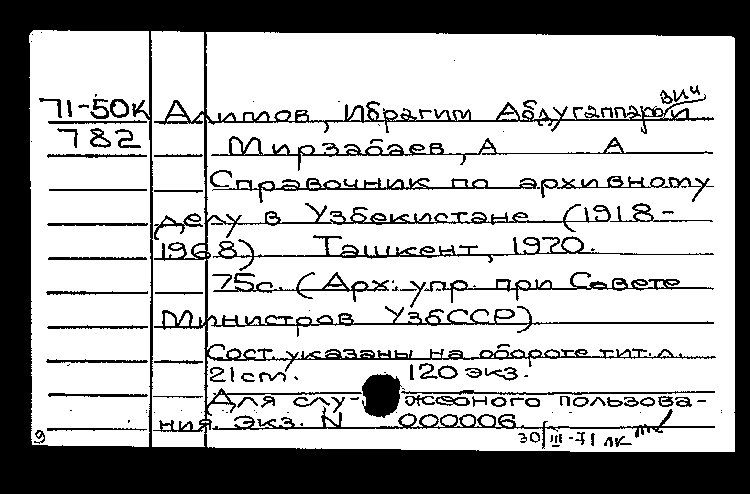 71-50к Алимов, Ибрагим Абдугаппарович
782 Мирзабаев, А А
Справочник по архивному
делу в Узбекистане (1918-
1968) Ташкент, 1970.
75с. (Арх. упр. при Совете
Министров УзбССР)
Сост. указаны на обороте тит. л.
21 cm. 120 экз.
Для слу- жебного пользова-
ния. Экз. N 000006.
9 30/III-71 лк